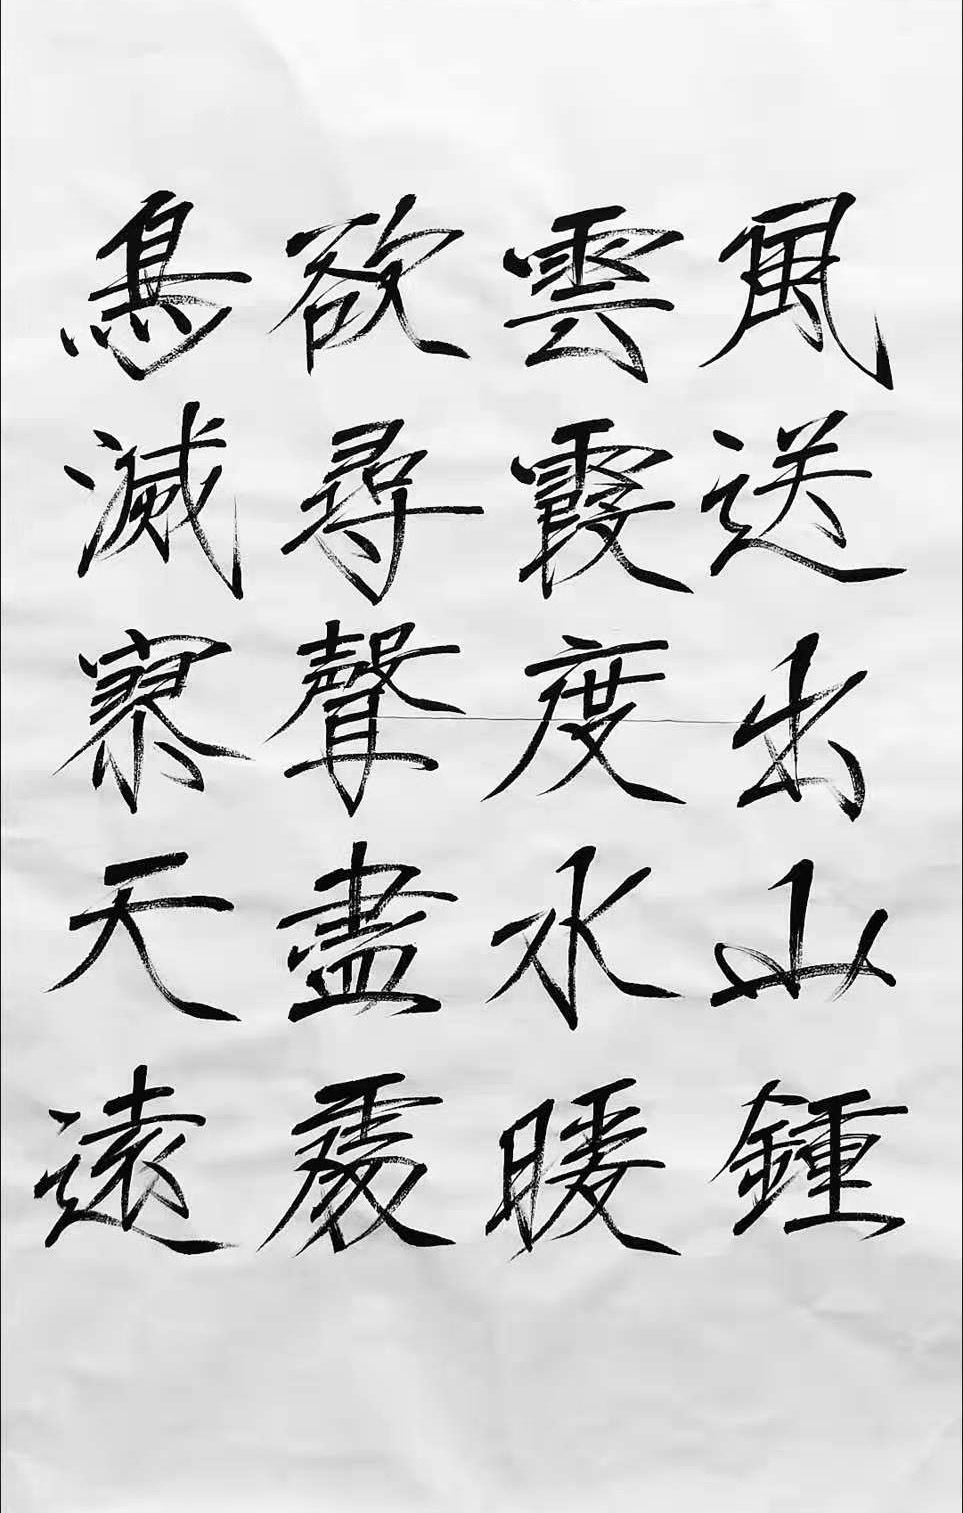 風送出山鍾
雲霞度水暖
欲尋聲盡處
鳥滅寥天遠